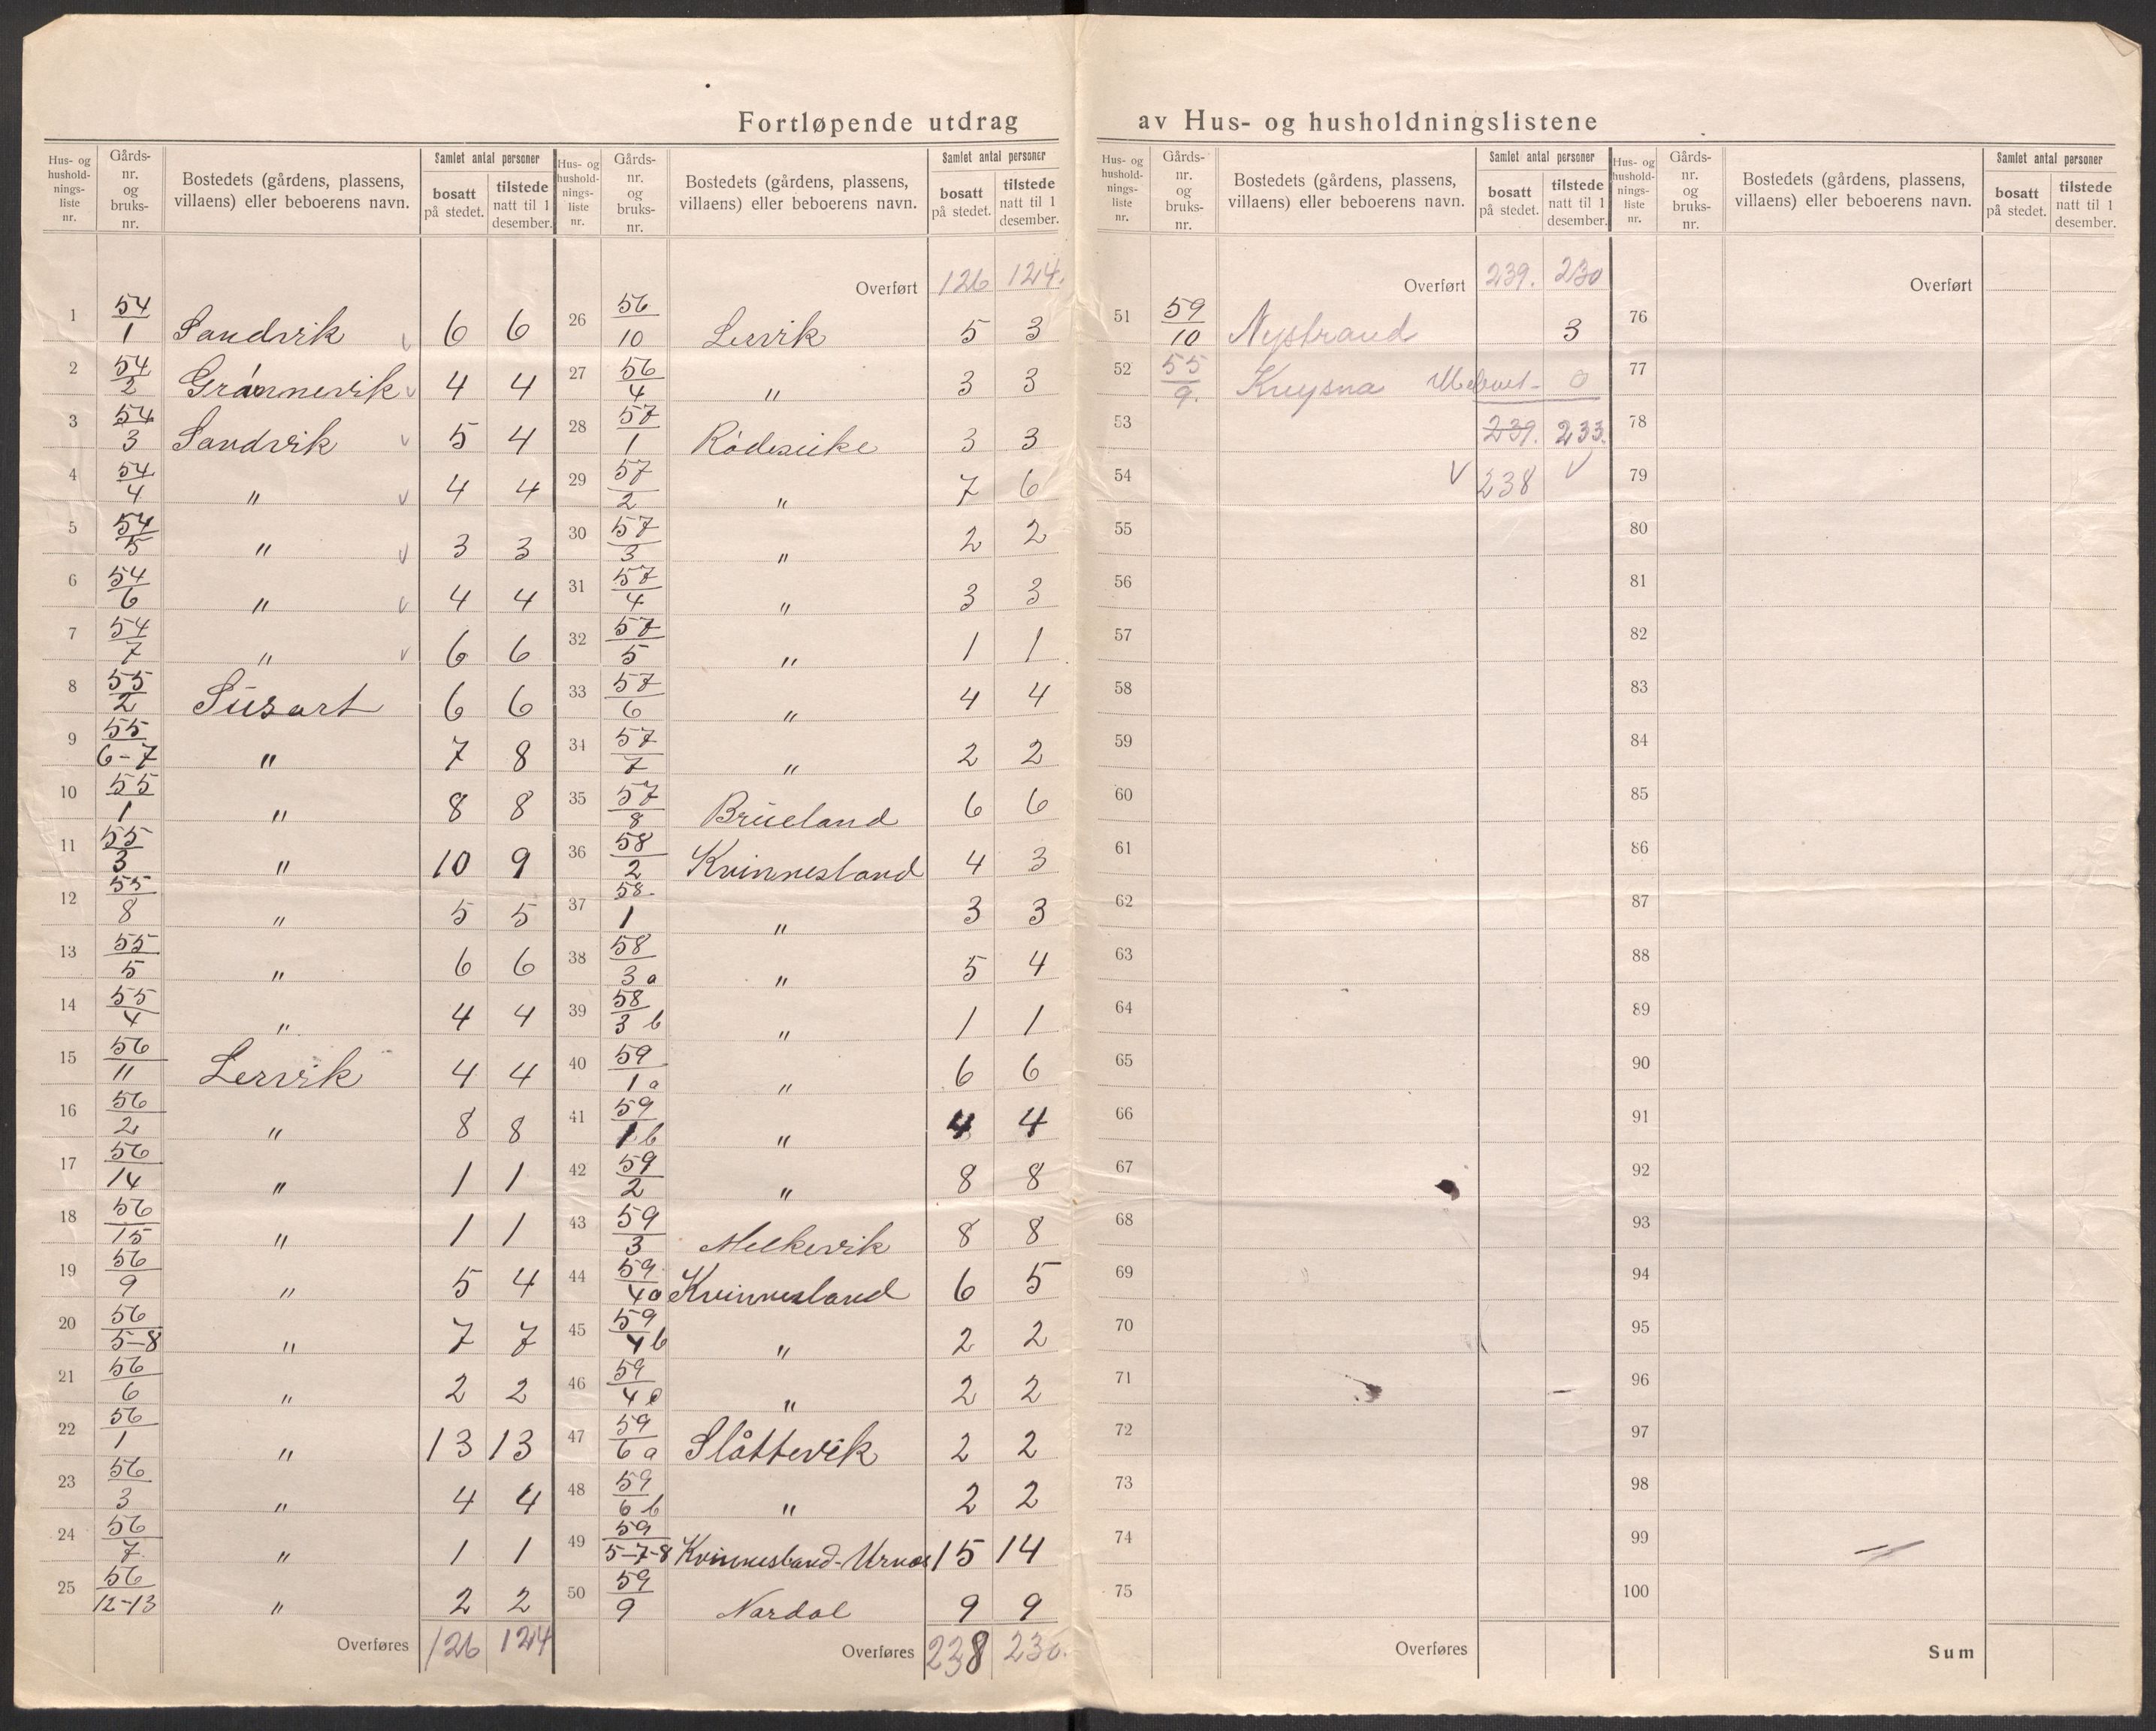 Fortløpende utdrag av Hus- og husholdningslistene
Hus- og husholdningsliste nr. | Gårds-nr. og bruks-nr. | Bostedets (gårdens, plassens, villaens) eller beboerens navn. | Samlet antal personer bosatt på stedet. | tilstede natt til 1 desember.
1 54/1 Sandvik 6 6
2 54/2 Grønnevik 4 4
3 54/3 Sandvik 5 4
4 54/4 " 4 4
5 54/5 " 3 3
6 54/6 " 4 4
7 54/7 " 6 6
8 55/2 Susort 6 6
9 55/6-7 " 7 8
10 55/1 " 8 8
11 55/3 " 10 9
12 55/8 " 5 5
13 55/5 " 6 6
14 55/4 " 4 4
15 56/11 Lervik 4 4
16 56/2 " 8 8
17 56/14 " 1 1
18 56/15 " 1 1
19 56/9 " 5 4
20 56/5-8 " 7 7
21 56/6 " 2 2
22 56/1 " 13 13
23 56/3 " 4 4
24 56/7 " 1 1
25 56/12-13 " 2 2
Overføres 126 124
Hus- og husholdningsliste nr. | Gårds-nr. og bruks-nr. | Bostedets (gårdens, plassens, villaens) eller beboerens navn. | Samlet antal personer bosatt på stedet. | tilstede natt til 1 desember.
Overført 126 124.
26 56/10 Lervik 5 3
27 56/4 " 3 3
28 57/1 Rødeseike 3 3
29 57/2 " 7 6
30 57/3 " 2 2
31 57/4 " 3 3
32 57/5 " 1 1
33 57/6 " 4 4
34 57/7 " 2 2
35 57/8 Brueland 6 6
36 58/2 Kvinnesland 4 3
37 58/1 " 3 3
38 58/3a " 5 4
39 58/3b " 1 1
40 59/1a " 6 6
41 59/1b " 4 4
42 59/2 " 8 8
43 59/3 Melkevik 8 8
44 59/4a Kvinnesland 6 5
45 59/4b " 2 2
46 59/4c " 2 2
47 59/6a Slåttevik 2 2
48 59/6b " 2 2
49 59/5-7-8 Kvinnesland-Urnes 15 14
50 59/9 Nordal 9 9
Overføres 238 230.
Hus- og husholdningsliste nr. | Gårds-nr. og bruks-nr. | Bostedets (gårdens, plassens, villaens) eller beboerens navn. | Samlet antal personer bosatt på stedet. | tilstede natt til 1 desember.
Overført 239. 230
51 59/10 Nystrand 3
52 55/9. Knysna Ubebuet - 0
53 239. 233.
54 238
55
56
57
58
59
60
61
62
63
64
65
66
67
68
69
70
71
72
73
74
75
Overføres
Hus- og husholdningsliste nr. | Gårds-nr. og bruks-nr. | Bostedets (gårdens, plassens, villaens) eller beboerens navn. | Samlet antal personer bosatt på stedet. | tilstede natt til 1 desember.
Overført
76
77
78
79
80
81
82
83
84
85
86
87
88
89
90
91
92
93
94
95
96
97
98
99
100
Sum